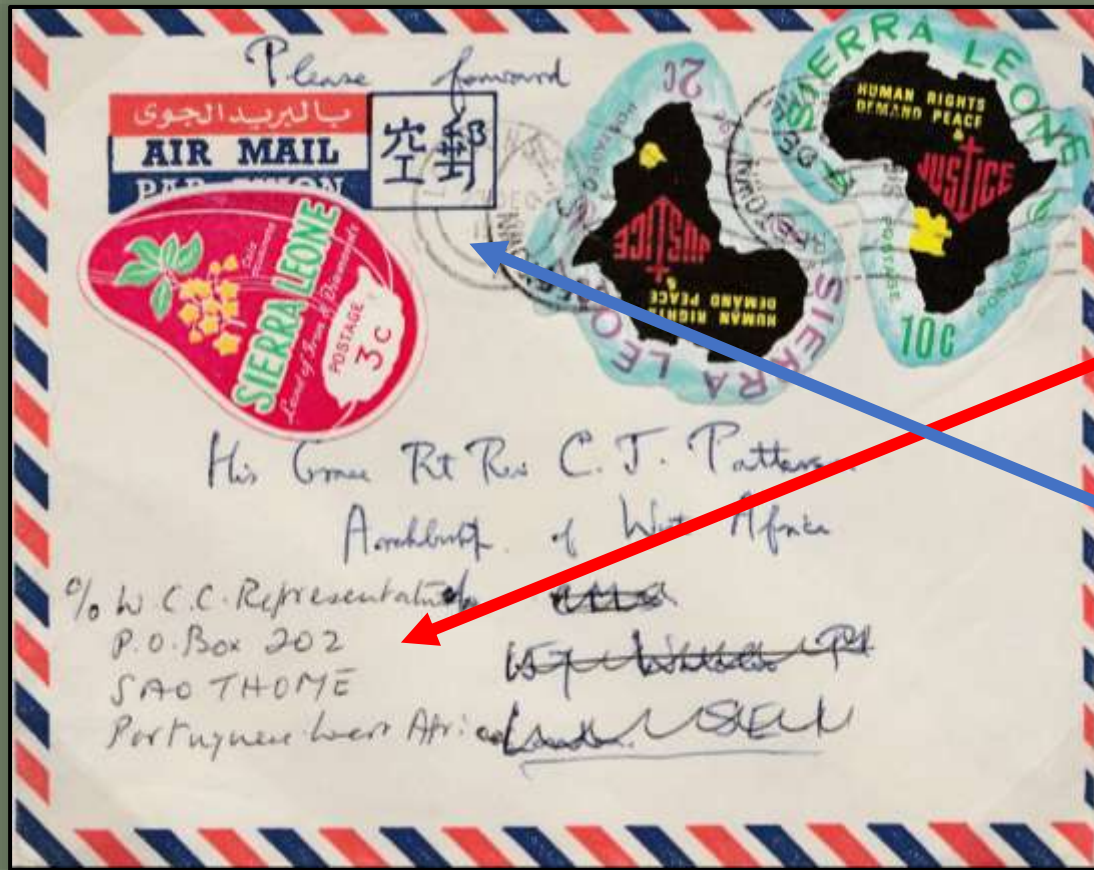 Please forward
بالبريد الجوى
AIR MAIL
PAR AVION
空郵
2c
SIERRA LEONE
HUMAN RIGHTS
DEMAND PEACE
&
JUSTICE
POSTAGE
SIERRA LEONE
HUMAN RIGHTS
DEMAND PEACE
&
JUSTICE
POSTAGE
10c
SIERRA LEONE
Land of Iron & Diamonds
POSTAGE
3c
His Grace Rt Rev C. J. Patterson
Archbishop of West Africa
c/o W.C.C. Representative
P.O. Box 202
SAO THOME
Portuguese West Africa
London